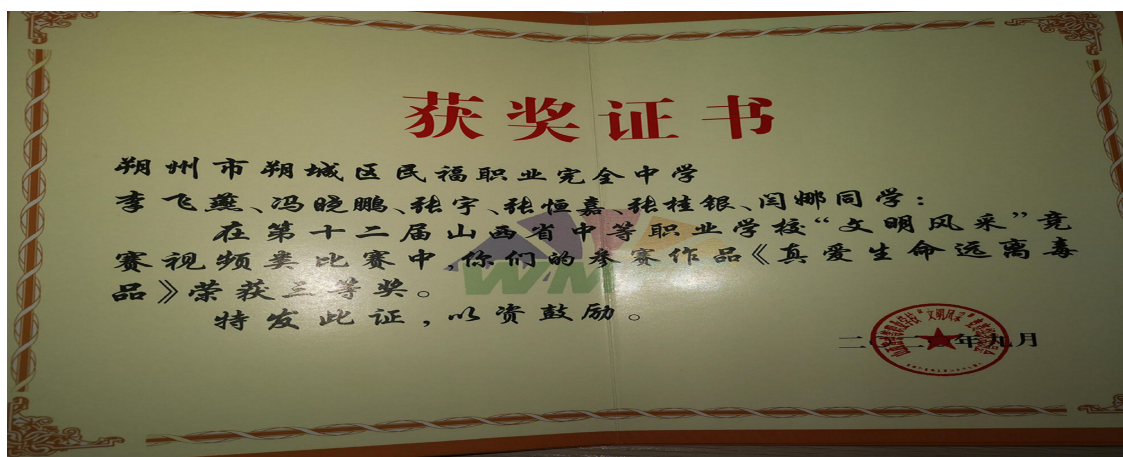 获奖证书
朔州市朔城区民福职业完全中学
李飞燕、冯晓鹏、张宇、张恒嘉、张桂银、闫娜同学：
在第十二届山西省中等职业学校“文明风采”竞
赛视频类比赛中，你们的参赛作品《真爱生命远离毒
品》荣获三等奖。
特发此证，以资鼓励。
WM
“文明风采”
年九月